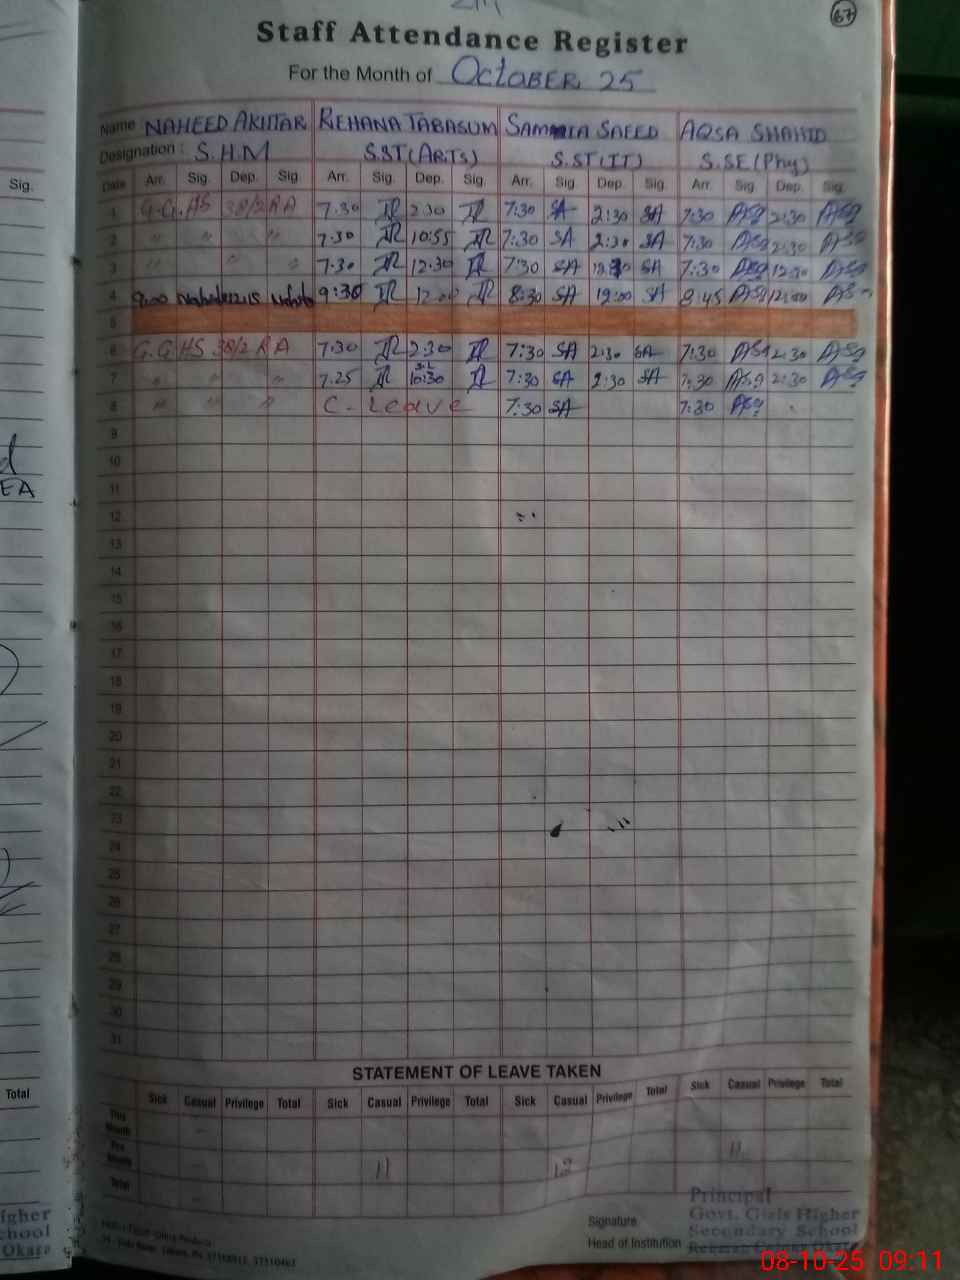 67
Staff Attendance Register
For the Month of October 25
Name NAHEED AKHTAR REHANA TABASUM SAMMIA SAEED AQSA SHAHID
Designation : S.H.M S.ST(ARTS) S.ST(IT) S.SE(Phy)
Sig. Date Arr. Sig. Dep. Sig Arr. Sig. Dep. Sig. Arr. Sig. Dep. Sig. Arr. Sig. Dep. Sig.
1 G.G.HS 38/2 RA 7.30 2:30 7:30 SA 2:30 SA 7:30 2:30
2 " " " 7.30 10:55 7:30 SA 2:30 SA 7:30 2:30
3 " " " 7.30 12.30 7:30 SA SA 7:30 12:30
4 9:00 12:15 9:30 12:00 8:30 SA 12:00 SA 8:45 12:00
5
6 G.GHS 38/2 RA 7.30 2:30 7:30 SA 2:30 SA 7:30 2:30
7 " " " 7.25 S.L 10:30 7:30 SA 2:30 SA 7:30 2:30
8 " " " C-Leave 7:30 SA 7:30
9
10
11
12
13
14
15
16
17
18
19
20
21
22
23
24
25
26
27
28
29
30
31
EA
STATEMENT OF LEAVE TAKEN
Total Sick Casual Privilege Total Sick Casual Privilege Total Sick Casual Privilege Total Sick Casual Privilege Total
This Month
Pre Month 11 12 11
Total
Principal
Signature Govt. Girls Higher
Secondary School
Head of Institution
igher
chool
Okara
08-10-25 09:11